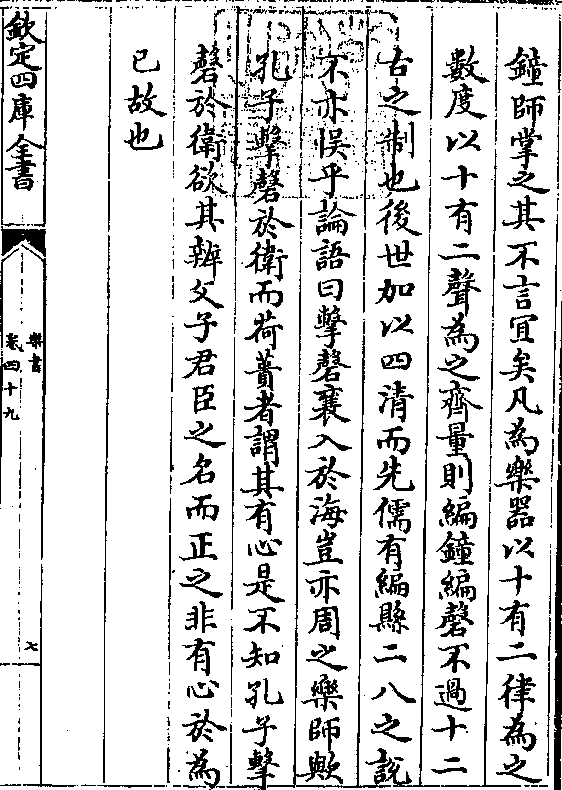 鐘師掌之其不言冝矣凡為樂器以十有二律為之
數度以十有二聲為之齊量則編鐘編磬不過十二
古之制也後世加以四清而先儒有編縣二八之說
不亦悞乎論語曰擊磬襄入於海豈亦周之樂師歟
孔子擊磬於衛而荷蕢者謂其有心是不知孔子擊
磬於衛欲其辨父子君臣之名而正之非有心於為
已故也
欽定四庫全書
樂書
卷四十九
七